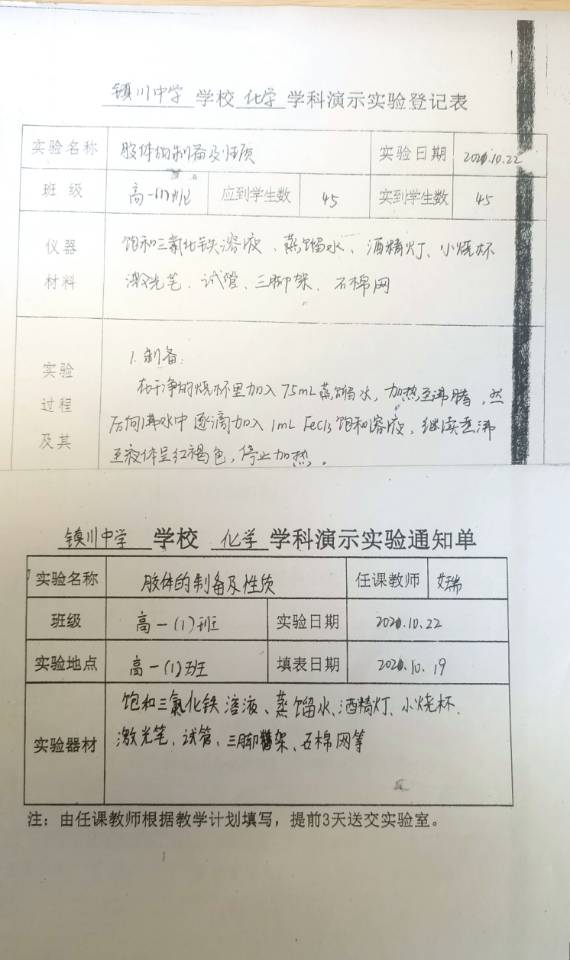 镇川中学 学校 化学 学科演示实验登记表
实验名称 胶体的制备及性质 实验日期 2020.10.22
班级 高一(1)班 应到学生数 45 实到学生数 45
仪器材料 饱和三氯化铁溶液、蒸馏水、酒精灯、小烧杯
激光笔、试管、三脚架、石棉网
实验过程及其
1. 制备:
在干净的烧杯里加入75mL蒸馏水,加热至沸腾,然
后向沸水中逐滴加入1mL FeCl3饱和溶液,继续煮沸
至液体呈红褐色,停止加热。
镇川中学 学校 化学 学科演示实验通知单
实验名称 胶体的制备及性质 任课教师
班级 高一(1)班 实验日期 2020.10.22
实验地点 高一(1)班 填表日期 2020.10.19
饱和三氯化铁溶液、蒸馏水、酒精灯、小烧杯、
实验器材 激光笔、试管、三脚架、石棉网等
注:由任课教师根据教学计划填写,提前3天送交实验室。